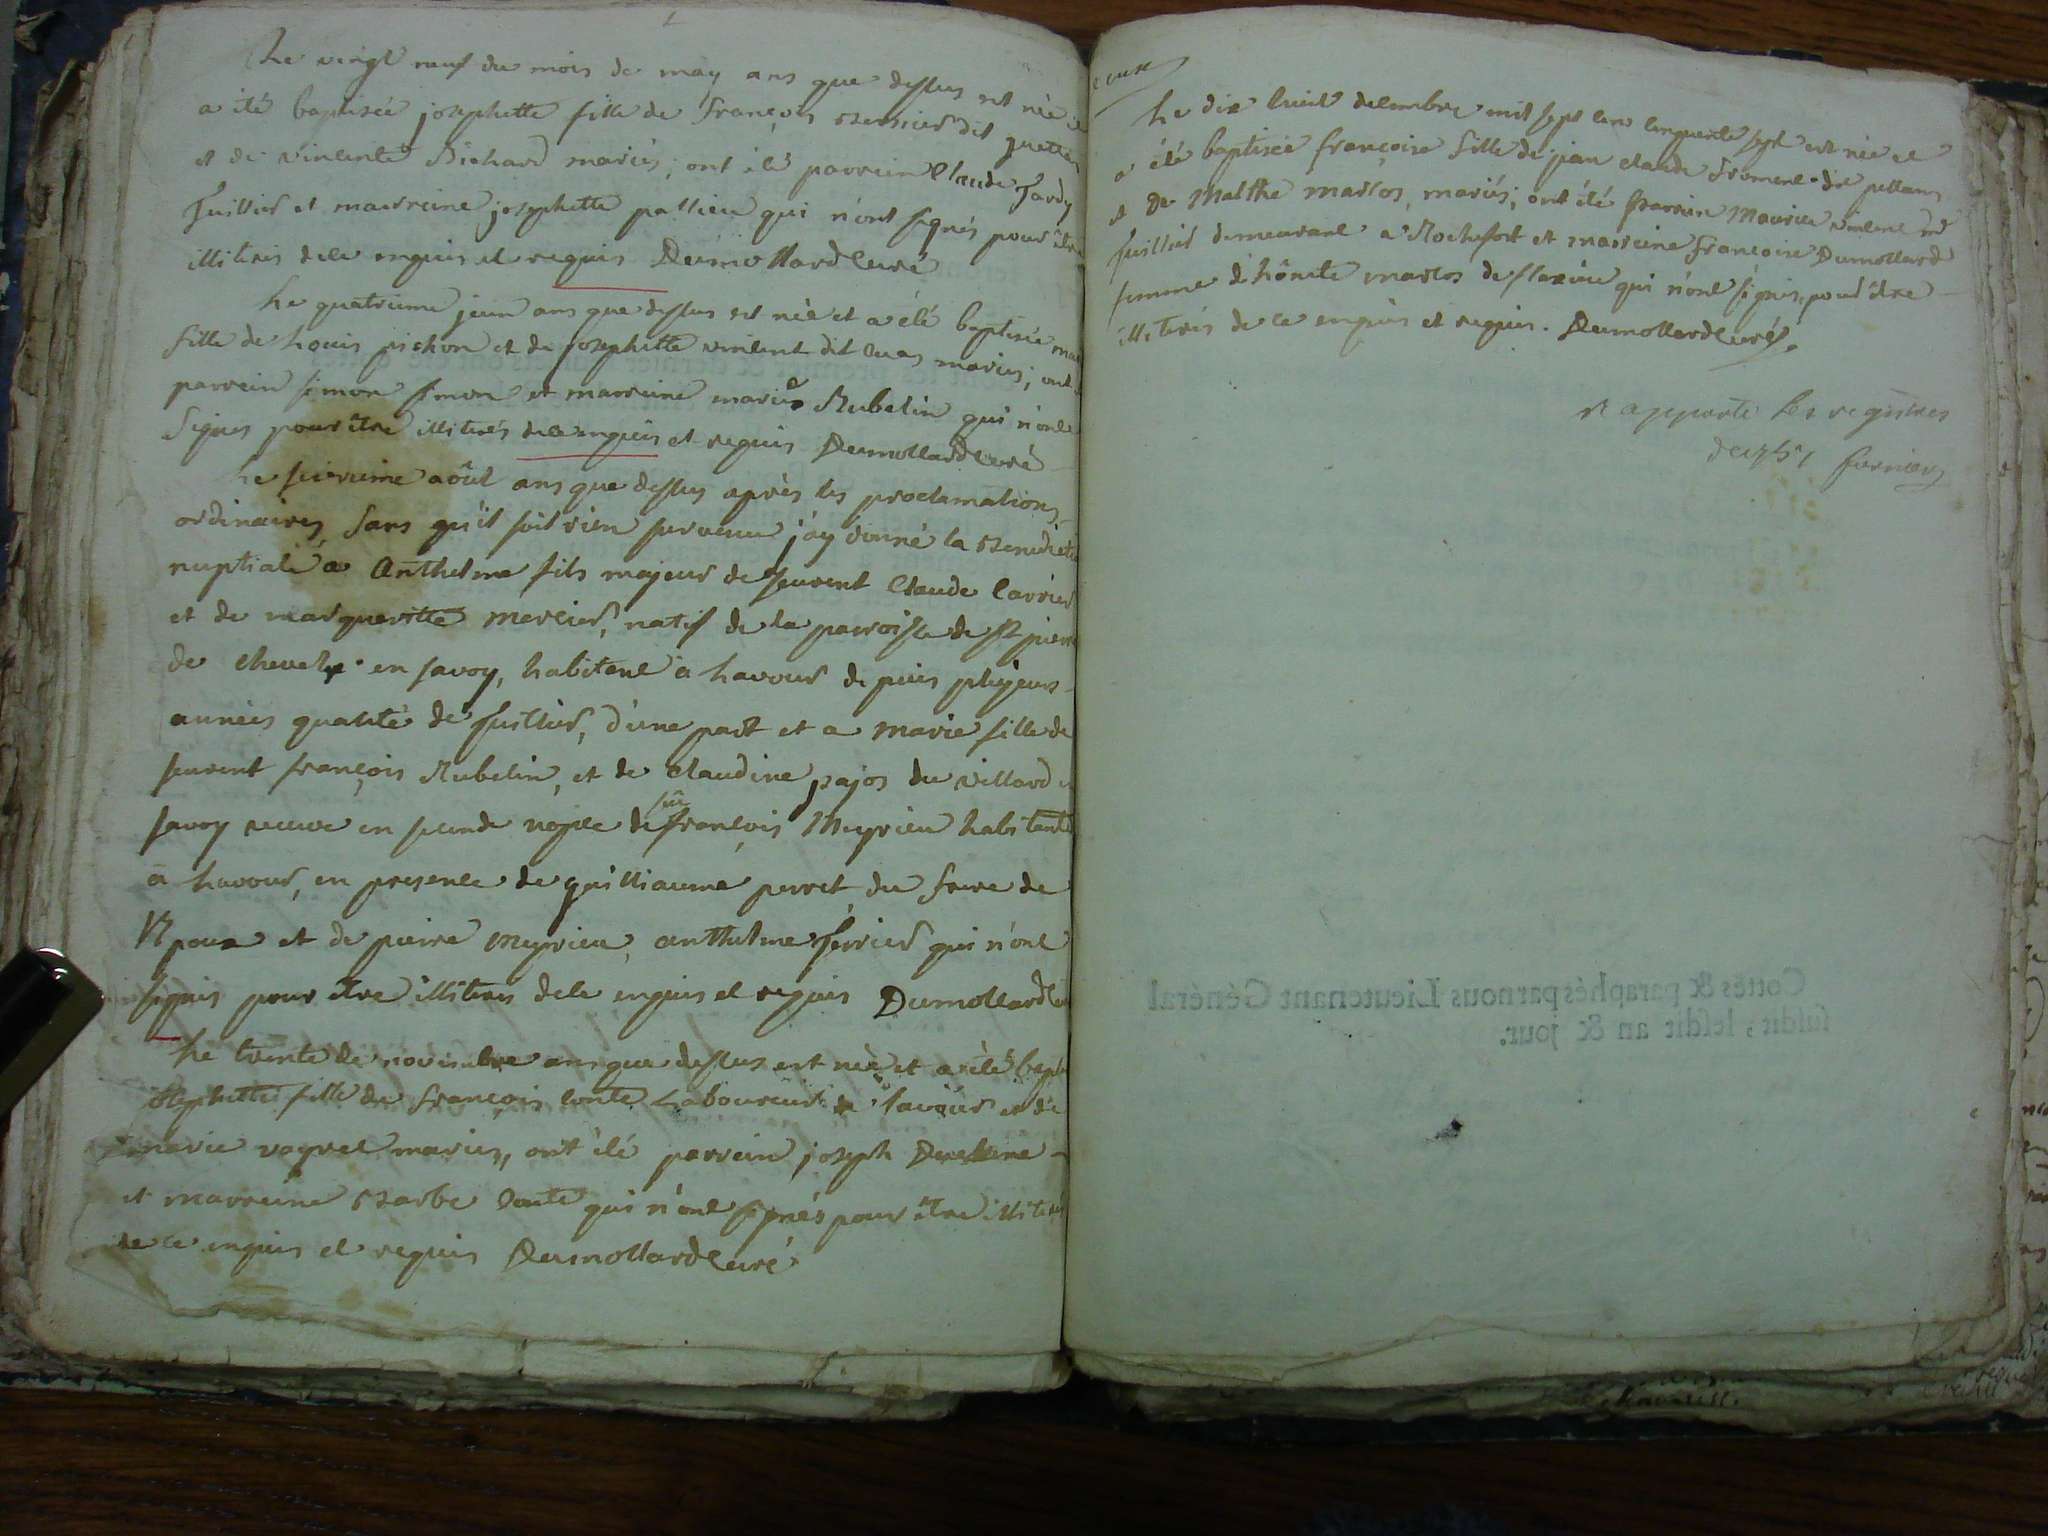 Le vingt neuf du mois de may ans que dessus est née et
a été baptisée josephette fille de françois Bernier dit
et de vincente Richard mariés; ont été parrein Claude Tardy
fustier et marreine josephette passieu qui n'ont signés pour être
illiterés de ce enquis et requis Dumollard Curé
Le quatrieme juin ans que dessus est née et a été baptisée
fille de Louis pichon et de josephette vincent dit Cuas mariés; ont
parrein simon simon et marreine marie Rubelin qui n'ont
signés pour être illiterés de ce enquis et requis Dumollard Curé
Le seizieme août ans que dessus après les proclamations
ordinaires, sans qu'il soit rien survenu j'ay donné la Benedicti
nuptiale a Anthelme fils majeur de feurent Claude Carrier
et de margueritte mercier, natif de la parroisse de st pierre
de chevelu en savoy, habitent a Lavour depuis plusieurs
années qualité de fustier, d'une part et a marie fille de
feurent françois Rubelin, et de Claudine pajos du villard
savoy veuve en seconde nopce de feu françois Meyrieu habitante
a Lavour, en presence de guilliaume perret du frere de
l'Epoux et de pierre meyrieu, anthelme ferrier qui n'ont
signés pour être illiterés de ce enquis et requis Dumollard Curé
Le trente de novembre ans que dessus est née et a été bapt
josephette fille de françois Conte Laboureur a Lavour et de
marie voyret mariés, ont été parrein joseph
et marreine Barbe Conte qui n'ont signés pour être illiterés
de ce enquis et requis Dumollard Curé
Le dix huit decembre mil sept cent cinquante sept est née et
a été baptisée françoise fille de jean claude froment dit pellan
et de Malthe marcos, mariés; ont été parrein Maurice vincent md
fustier demeurant a Rochefort et marreine françoise Dumollard
femme d'hônete marcos de flaxieu qui n'ont signés, pour être
illiterés de ce enquis et requis. Dumollard Curé
rapporté les registres
de 1757
Cottés & paraphés par nous Lieutenant Général
susdit, lesdit an & jour.